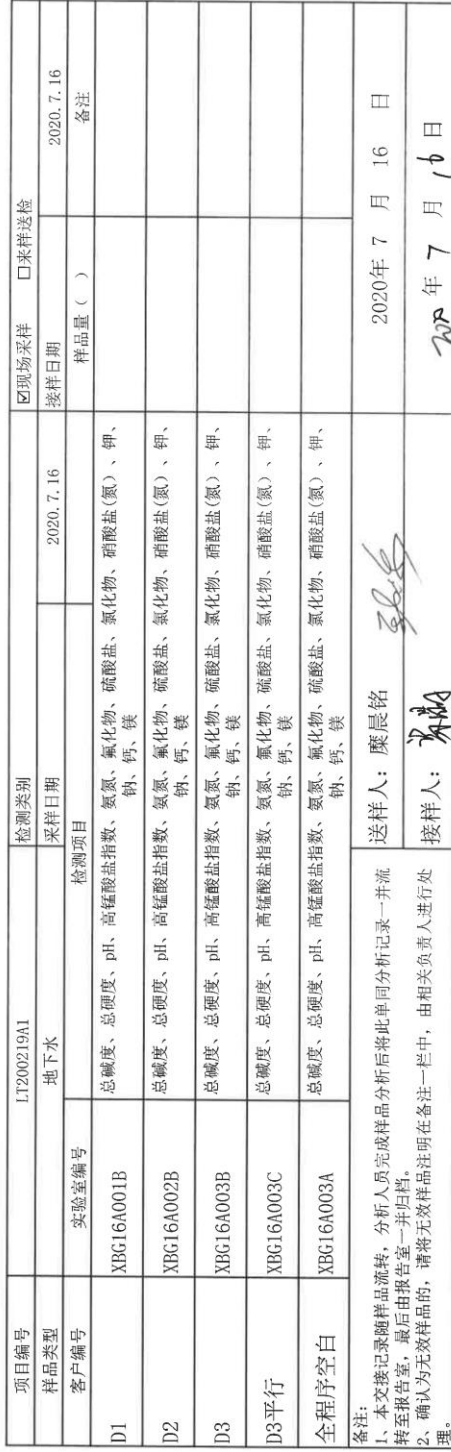 项目编号 LT200219A1 检测类别 ☑现场采样 □来样送检
样品类型 地下水 采样日期 2020.7.16 接样日期 2020.7.16
客户编号 实验室编号 检测项目 样品量( ) 备注
D1 XBG16A001B 总碱度、总硬度、pH、高锰酸盐指数、氨氮、氟化物、硫酸盐、氯化物、硝酸盐(氮)、钾、
钠、钙、镁
D2 XBG16A002B 总碱度、总硬度、pH、高锰酸盐指数、氨氮、氟化物、硫酸盐、氯化物、硝酸盐(氮)、钾、
钠、钙、镁
D3 XBG16A003B 总碱度、总硬度、pH、高锰酸盐指数、氨氮、氟化物、硫酸盐、氯化物、硝酸盐(氮)、钾、
钠、钙、镁
D3平行 XBG16A003C 总碱度、总硬度、pH、高锰酸盐指数、氨氮、氟化物、硫酸盐、氯化物、硝酸盐(氮)、钾、
钠、钙、镁
全程序空白 XBG16A003A 总碱度、总硬度、pH、高锰酸盐指数、氨氮、氟化物、硫酸盐、氯化物、硝酸盐(氮)、钾、
钠、钙、镁
备注:
1、本交接记录随样品流转，分析人员完成样品分析后将此单同分析记录一并流
转至报告室，最后由报告室一并归档。
2、确认为无效样品的，请将无效样品注明在备注一栏中，由相关负责人进行处
理。
送样人：糜晨铭 2020年 7 月 16 日
接样人： 2020 年 7 月 16 日